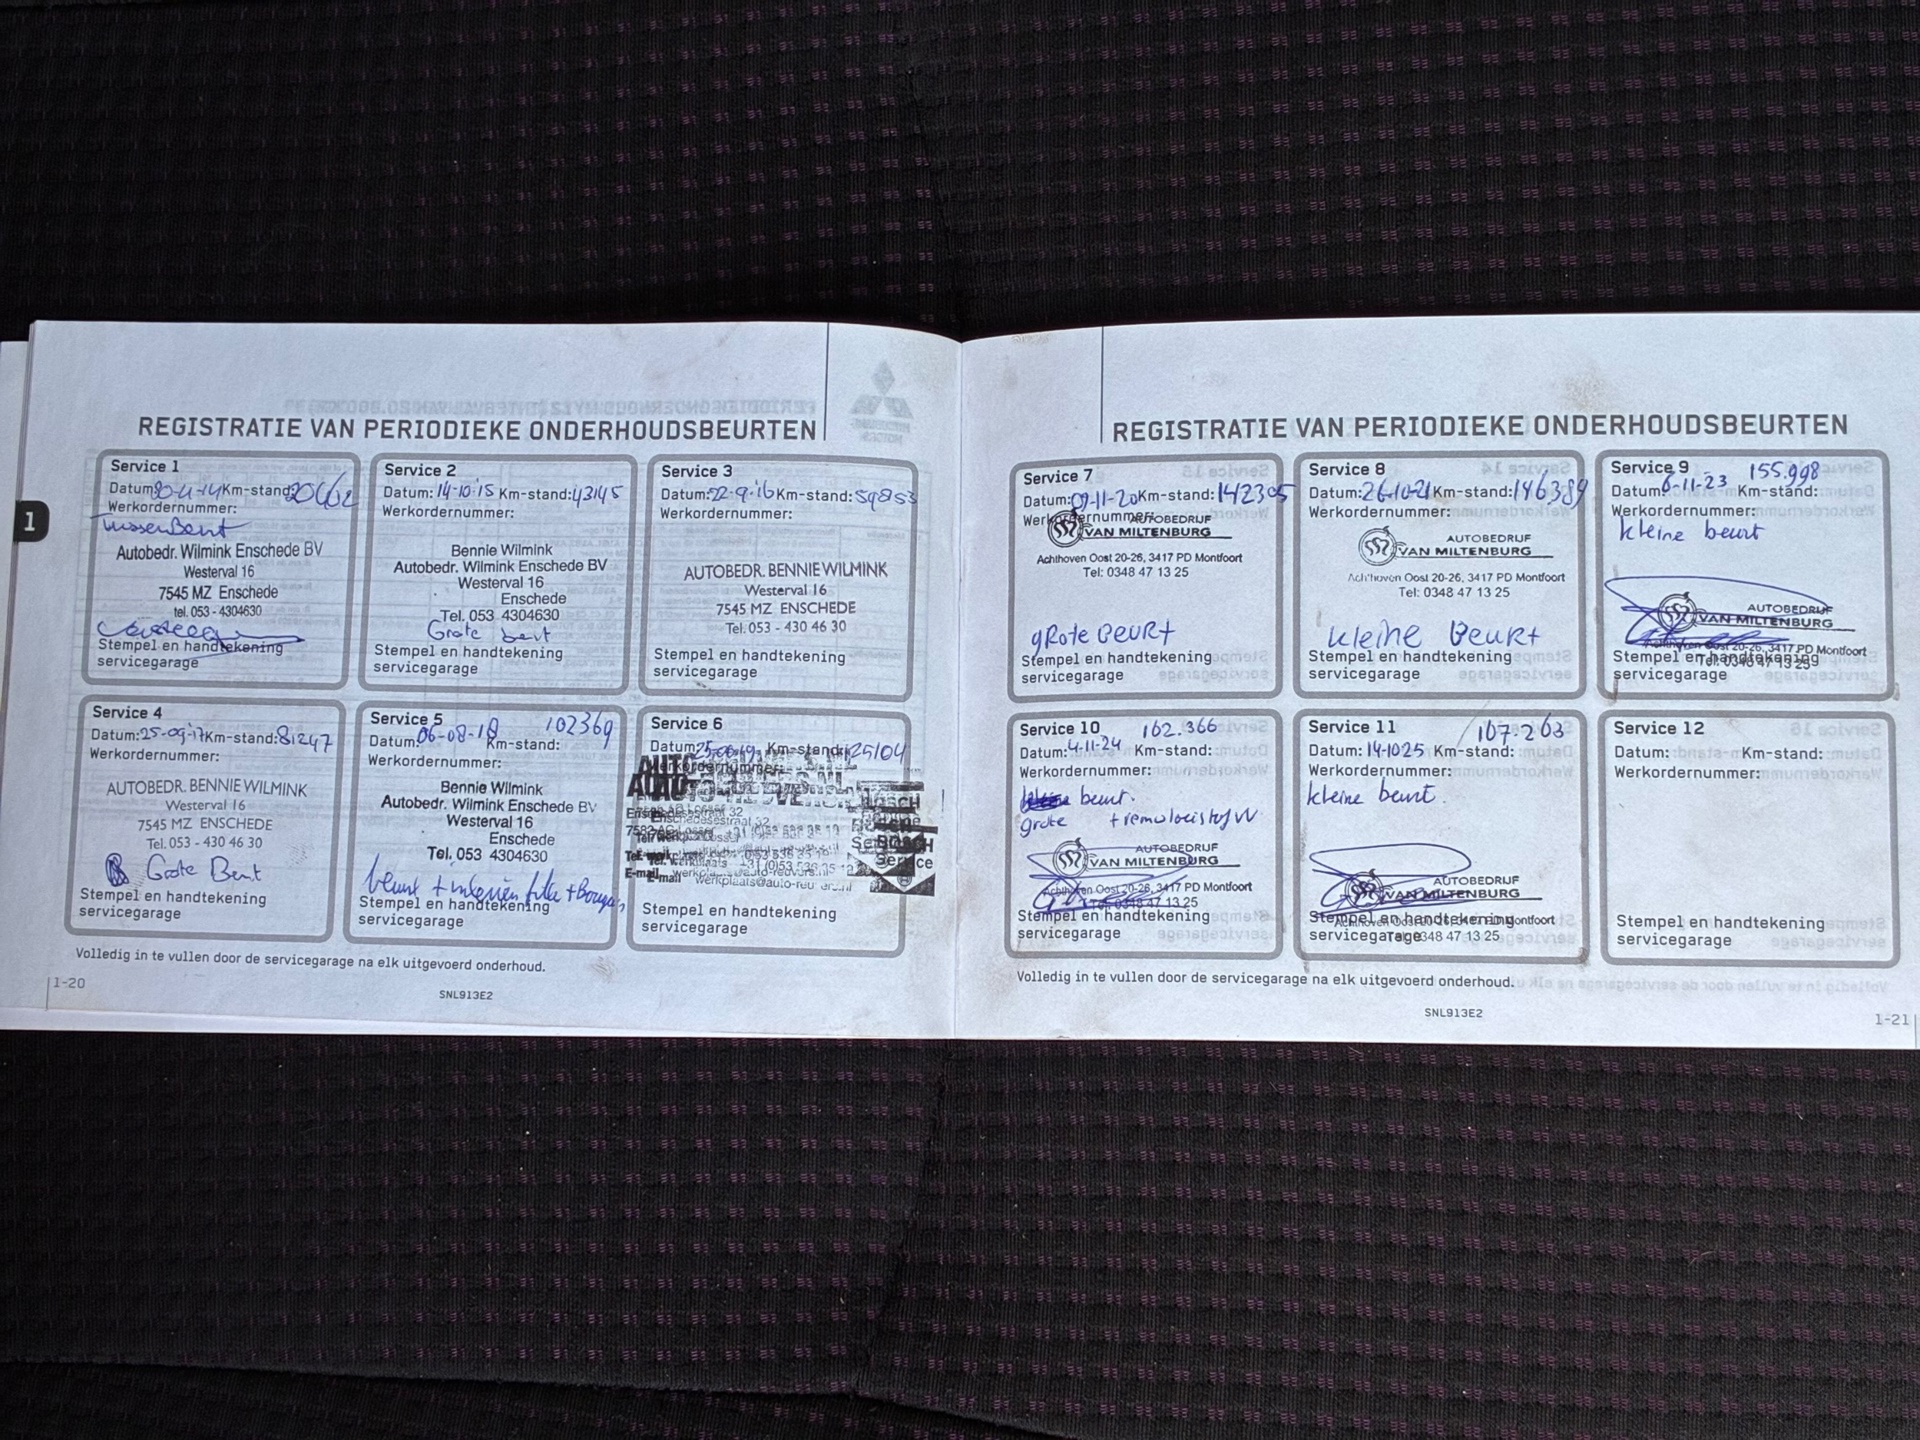 REGISTRATIE VAN PERIODIEKE ONDERHOUDSBEURTEN
1
Service 1
Datum: 20-11-14 Km-stand: 20662
Werkordernummer:
tussenBeurt
Autobedr. Wilmink Enschede BV
Westerval 16
7545 MZ Enschede
tel. 053 - 4304630
Stempel en handtekening
servicegarage
Service 2
Datum: 14-10-15 Km-stand: 43145
Werkordernummer:
Bennie Wilmink
Autobedr. Wilmink Enschede BV
Westerval 16
Enschede
Tel. 053 4304630
Grote beurt
Stempel en handtekening
servicegarage
Service 3
Datum: 22-9-'16 Km-stand: 59853
Werkordernummer:
AUTOBEDR. BENNIE WILMINK
Westerval 16
7545 MZ ENSCHEDE
Tel. 053 - 430 46 30
Stempel en handtekening
servicegarage
Service 4
Datum: 25-09-17 Km-stand: 81247
Werkordernummer:
AUTOBEDR. BENNIE WILMINK
Westerval 16
7545 MZ ENSCHEDE
Tel. 053 - 430 46 30
Grote Beurt
Stempel en handtekening
servicegarage
Service 5 102369
Datum: 06-08-18 Km-stand:
Werkordernummer:
Bennie Wilmink
Autobedr. Wilmink Enschede BV
Westerval 16
Enschede
Tel. 053 4304630
beurt + interieur filter + Bougies
Stempel en handtekening
servicegarage
Service 6
Datum: Km-stand: 125104
Werkordernummer:
Enschedesestraat 32
E-mail
BOSCH
Service
Stempel en handtekening
servicegarage
Volledig in te vullen door de servicegarage na elk uitgevoerd onderhoud.
1-20
SNL913E2
REGISTRATIE VAN PERIODIEKE ONDERHOUDSBEURTEN
Service 7
Datum: 09-11-20 Km-stand: 142305
Werkordernummer:
AUTOBEDRIJF
VAN MILTENBURG
Achthoven Oost 20-26, 3417 PD Montfoort
Tel: 0348 47 13 25
gRote BeuRt
Stempel en handtekening
servicegarage
Service 8
Datum: 26-10-21 Km-stand: 146389
Werkordernummer:
AUTOBEDRIJF
VAN MILTENBURG
Achthoven Oost 20-26, 3417 PD Montfoort
Tel: 0348 47 13 25
kleine BeuRt
Stempel en handtekening
servicegarage
Service 9 155.998
Datum: 6-11-23 Km-stand:
Werkordernummer:
kleine beurt
AUTOBEDRIJF
VAN MILTENBURG
Achthoven Oost 20-26, 3417 PD Montfoort
Tel: 0348 47 13 25
Stempel en handtekening
servicegarage
Service 10 162.366
Datum: 4-11-24 Km-stand:
Werkordernummer:
beurt.
grote + remvloeistof VV
AUTOBEDRIJF
VAN MILTENBURG
Achthoven Oost 20-26, 3417 PD Montfoort
Tel: 0348 47 13 25
Stempel en handtekening
servicegarage
Service 11 167.263
Datum: 14-1025 Km-stand:
Werkordernummer:
kleine beurt.
AUTOBEDRIJF
VAN MILTENBURG
Achthoven Oost 20-26, 3417 PD Montfoort
Tel: 0348 47 13 25
Stempel en handtekening
servicegarage
Service 12
Datum: Km-stand:
Werkordernummer:
Stempel en handtekening
servicegarage
Volledig in te vullen door de servicegarage na elk uitgevoerd onderhoud.
SNL913E2
1-21